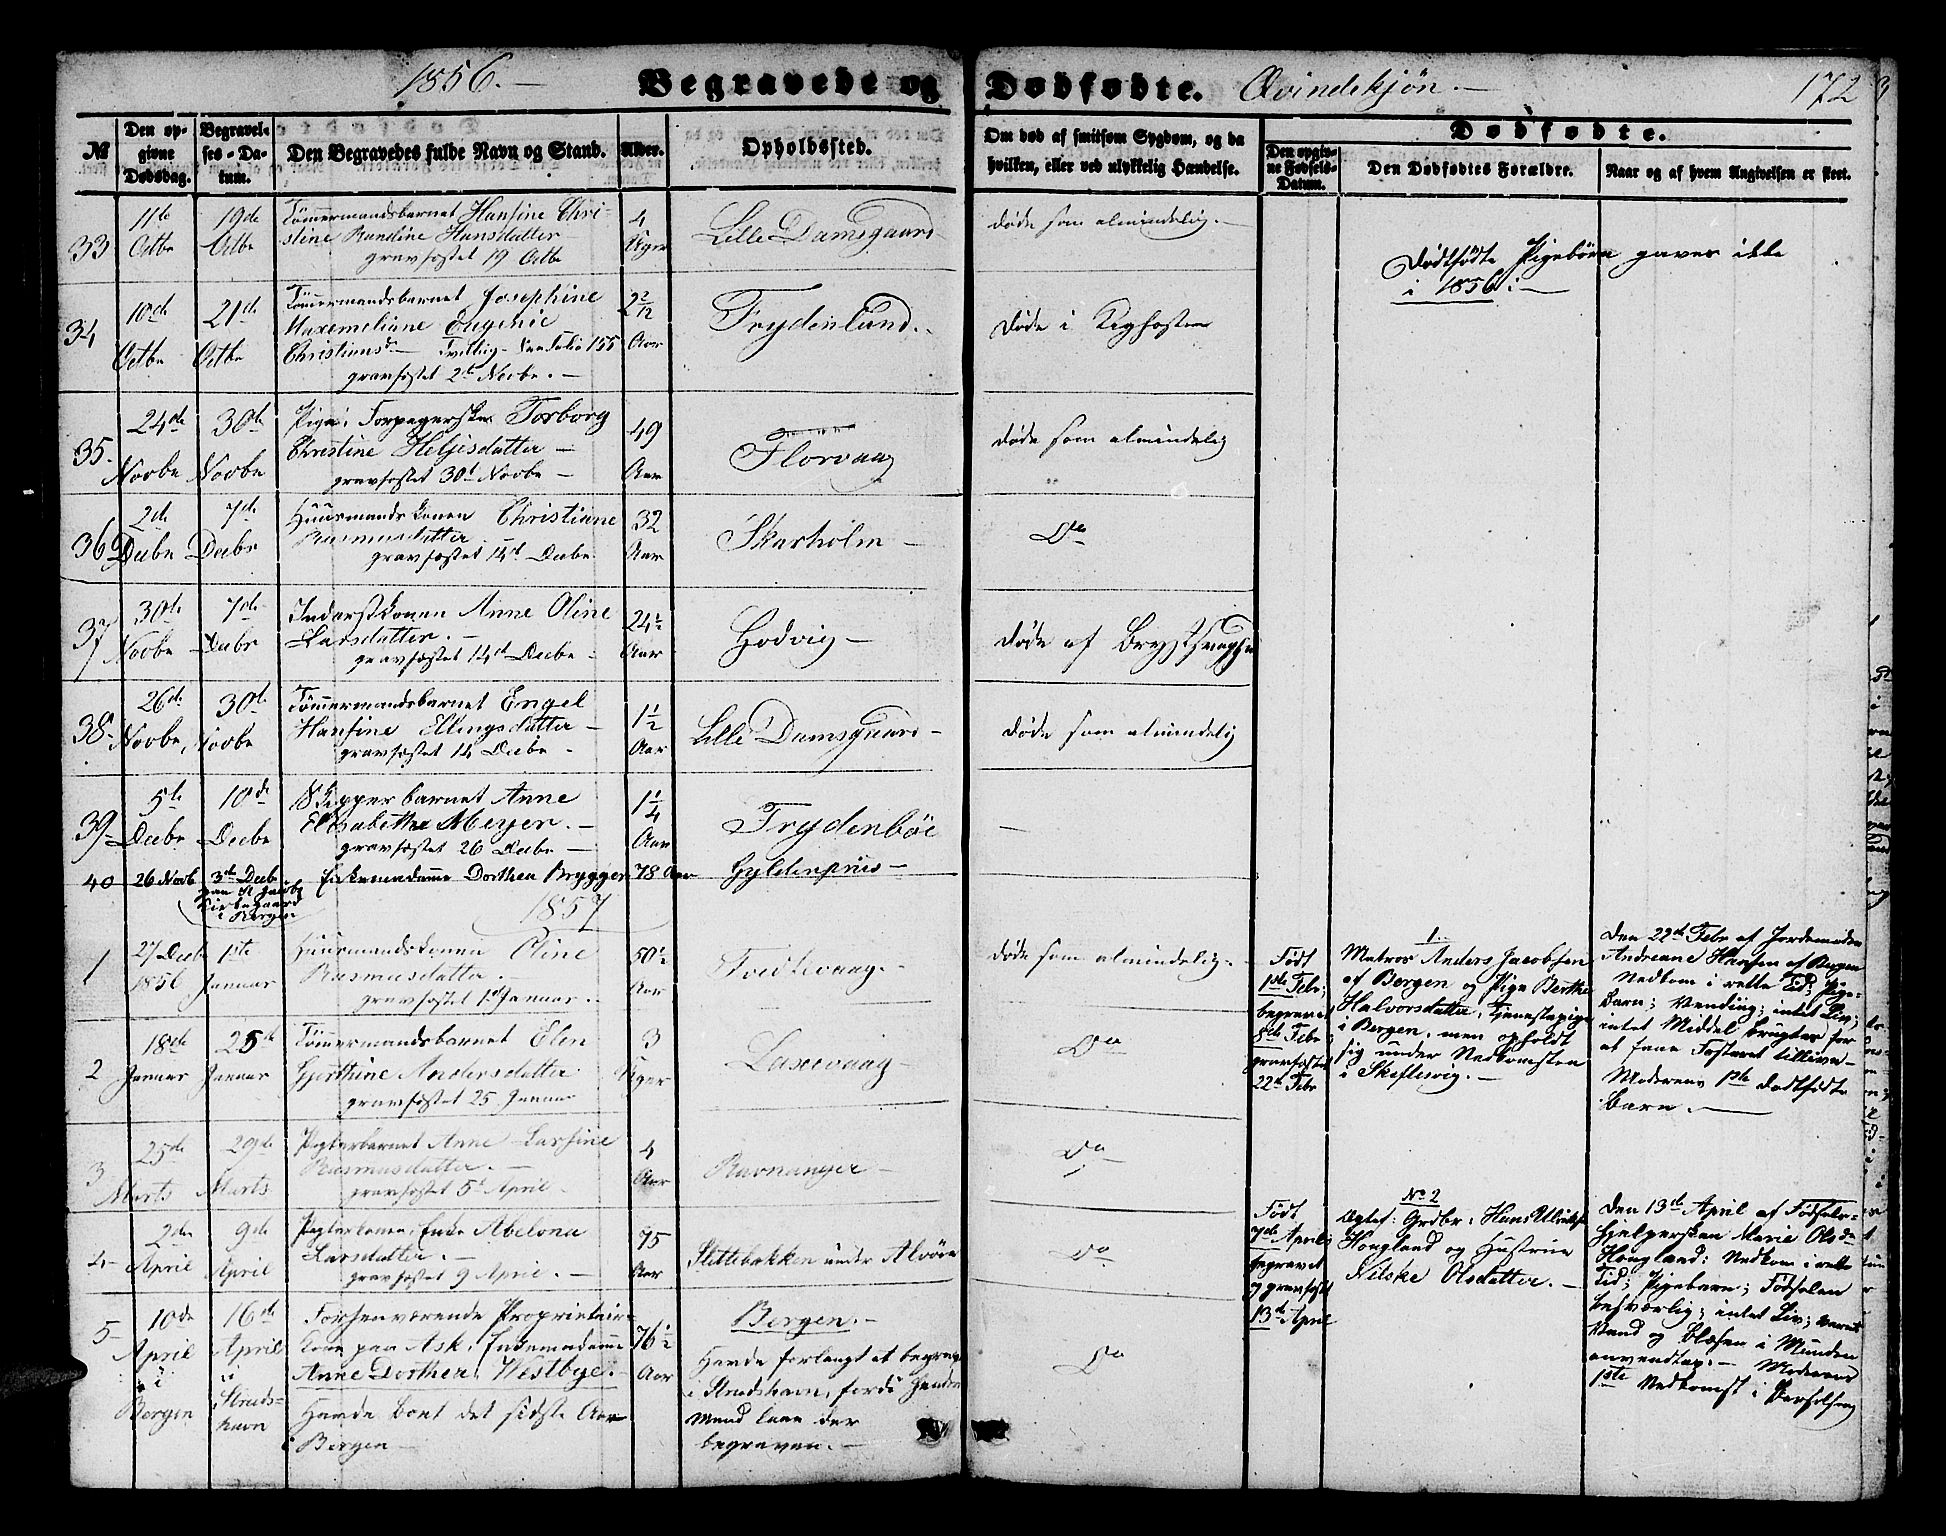 1856. -
Begravede og Dødfødte. Qvindekjøn. -
172
№
Den opgivne Dødsdag.
Begravelses-Datum.
Den Begravedes fulde Navn og Stand.
Alder.
Opholdssted.
Om død af smitsom Sygdom, og da
hvilken, eller ved ulykkelig Hændelse.
Dødfødte.
Den opgivne Fødsels-Datum.
Den Dødfødtes Forældre.
Naar og af hvem Angivelsen er skeet.
33
11te Octbr
19de Octbr
Tömmermandsbarnet Hansine Chri-
stine Randine Hansdatter
gravfæstet 19 Octbr
4 Uger
Lille Damsgaard
døde som almindelig. -
Dødfødte Pigebørn gaves ikke
i 1856. -
34
10de Octbr
21de Octbr
Tömmermandsbarnet Josephine
Maxemeliane Eugenie
Christiansd. - Tvilling -
gravfæstet 2de Novbr. -
2 2/12 Aar
Frydenlund. -
døde i Kighoste
35.
24de Novbr
30te Novbr
Pige Torborg
Christine Heljesdatter -
gravfæstet 30te Novbr -
49 Aar
Florvaag
døde som almindelig
36
2de Decbr
7de Decbr
Huusmandskonen Christiane
Rasmusdatter
gravfæstet 14de Decbr.
32 Aar
Skarholm -
Do
37
30te Novbr
7de Decbr
Inderstkonen Anne Oline
Larsdatter. -
gravfæstet 14de Decbr -
24 1/2 Aar
Godvig -
døde af Brystsvaghed
38.
26de Novbr.
30te Novbr
Tömmermandsbarnet Engel
Hansine Ellingsdatter -
gravfæstet 14 Decbr -
1 1/2 Aar
Lille Damsgaard -
døde som almindelig
39
5te Decbr
10de Decbr
Skipperbarnet Anne
Elisabethe Meyer. -
gravfæstet 26 Decbr -
1 1/4 Aar
Frydenböe
-
40
26 Novb
3de Decbr
paa St Jacobs
Kirkegaard
i Bergen
Enkemadamme Dorthea Brygger
78 Aar
Gyldenpriis -
1857
1
27 Decb 1856
1ste Januar
Huusmandskonen Oline
Rasmusdatter.
gravfæstet 1ste Januar. -
50 1/2 Aar
Tvedtevaag. -
døde som almindelig. -
Födt
1ste Febr;
begravet
8de Febr
gravfæstet
22de Febr
1.
Matros Anders Jacobsen
af Bergen og Pige Berthe
Halvorsdatter, Tjenestepige
i Bergen, men opholdt
sig under Nedkomsten
i Skeflesvig. -
Den 22de Febr af Jordemoder
Andreane Hansen af Bergen
Nedkom i rette Tid; Pige-
barn; Vending; intet Liv;
intet Middel brugtes for
at faae Fosteret tillive -
Moderens 1ste dødfødte
Barn. -
2
18de Januar
25de Januar
Tömmermandsbarnet Elen
Gjerthine Andersdatter
gravfæstet 25 Januar
3 Uger
Laxevaag -
Do
3
25de Marts
29de Marts
Pagterbarnet Anne Larsine
Rasmusdatter. -
gravfæstet 5te April -
4 Aar
Ravnanger -
Do
4
2de April
9de April
Pagterkone, Enke Abelona
Larsdatter. -
gravfæstet 9 April. -
75 Aar
Slettebakken under Alvöen
Do
Födt
7de April
begravet
og gravfæstet
13de April
No 2
Ægtef: Grdbr: Hans Ulriksen
Hougland og Hustrue
Nilske Olsdatter. -
Den 13de April af Fødsels-
hjelpersken Marie Olsdr
Hougland: Nedkom i rette
Tid; Pigebarn; Födselen
besværlig; intet Liv; varmt
Vand og blæsen i Munden
anvendtes. - Moderens
1ste Nedkomst
5
10de April i Bergen
16de April i Strudshavn
Forhenværende Proprietair-
kone paa Ask, Enkemadamme
Anne Dorthea Westbye. -
Havde boet det sidste Aar
i Bergen -
76 1/2 Aar
Bergen. -
Havde forlangt at begraves
i Strudshavn, fordi hendes
Mand laae der
begraven. -
Do